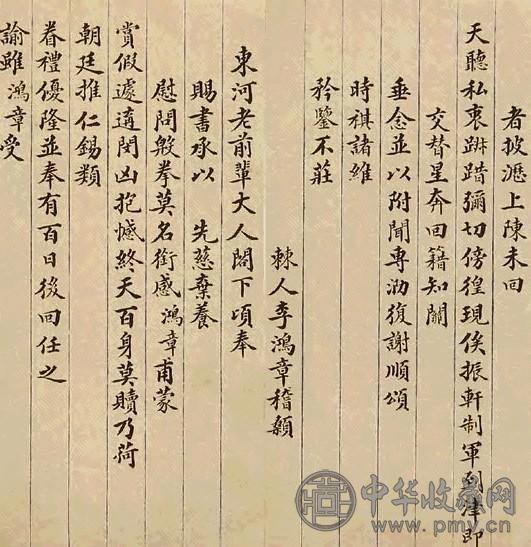 者披瀝上陳未回
天聽私衷跼蹐彌切傍徨現俟振軒制軍到津即
交替星奔回籍知關
垂念並以附聞專泐復謝順頌
時祺諸維
矜鑒不莊
棘人李鴻章稽顙
東河老前輩大人閣下頃奉
賜書承以 先慈棄養
慰問殷拳莫名銜感鴻章甫蒙
賞假遽遘閔凶抱憾終天百身莫贖乃荷
朝廷推仁錫類
眷禮優隆並奉有百日後回任之
諭雖鴻章受
中华收藏网
www.pmy.cn